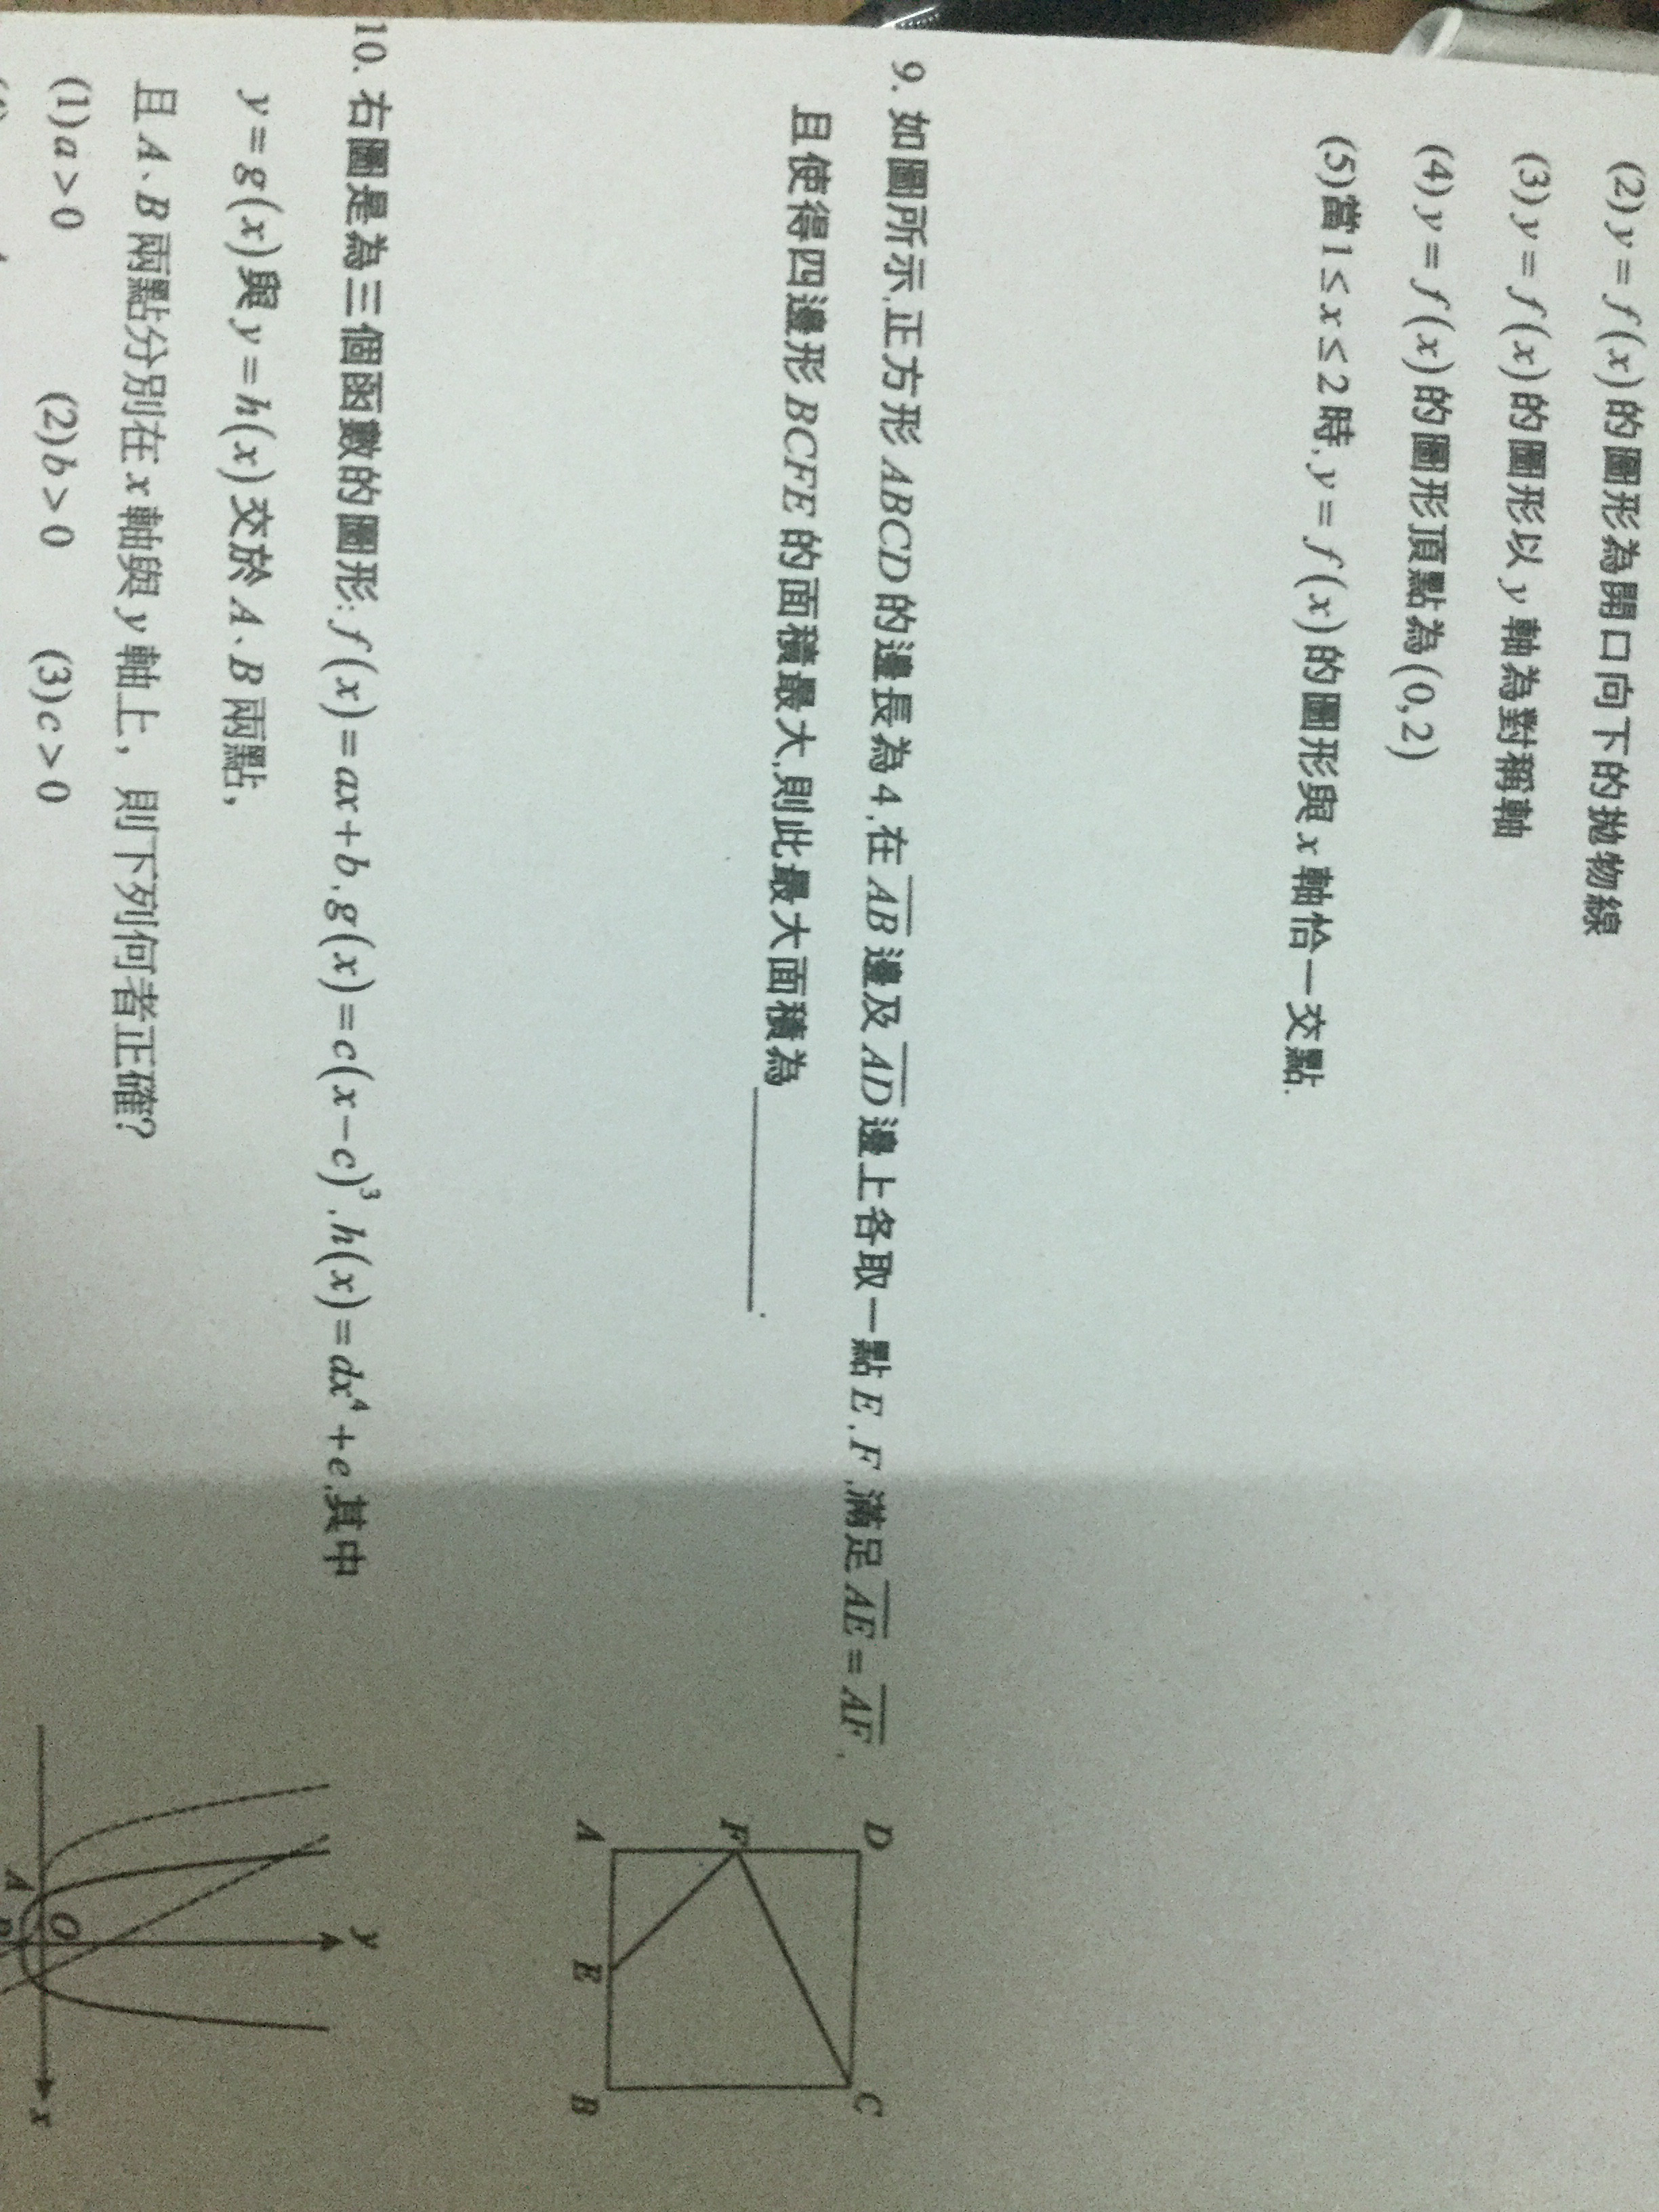 (2) y = f(x) 的圖形為開口向下的拋物線
(3) y = f(x) 的圖形以 y 軸為對稱軸
(4) y = f(x) 的圖形頂點為 (0, 2)
(5) 當 1 ≤ x ≤ 2 時, y = f(x) 的圖形與 x 軸恰一交點.
9. 如圖所示,正方形 ABCD 的邊長為 4,在 \overline{AB} 邊及 \overline{AD} 邊上各取一點 E, F,滿足 \overline{AE} = \overline{AF},
且使得四邊形 BCFE 的面積最大,則此最大面積為________.
D
C
F
A
E
B
10. 右圖是為三個函數的圖形: f(x) = ax + b, g(x) = c(x − c)³, h(x) = dx⁴ + e,其中
y = g(x) 與 y = h(x) 交於 A、B 兩點,
且 A、B 兩點分別在 x 軸與 y 軸上，則下列何者正確?
(1) a > 0 (2) b > 0 (3) c > 0
y
A
O
x